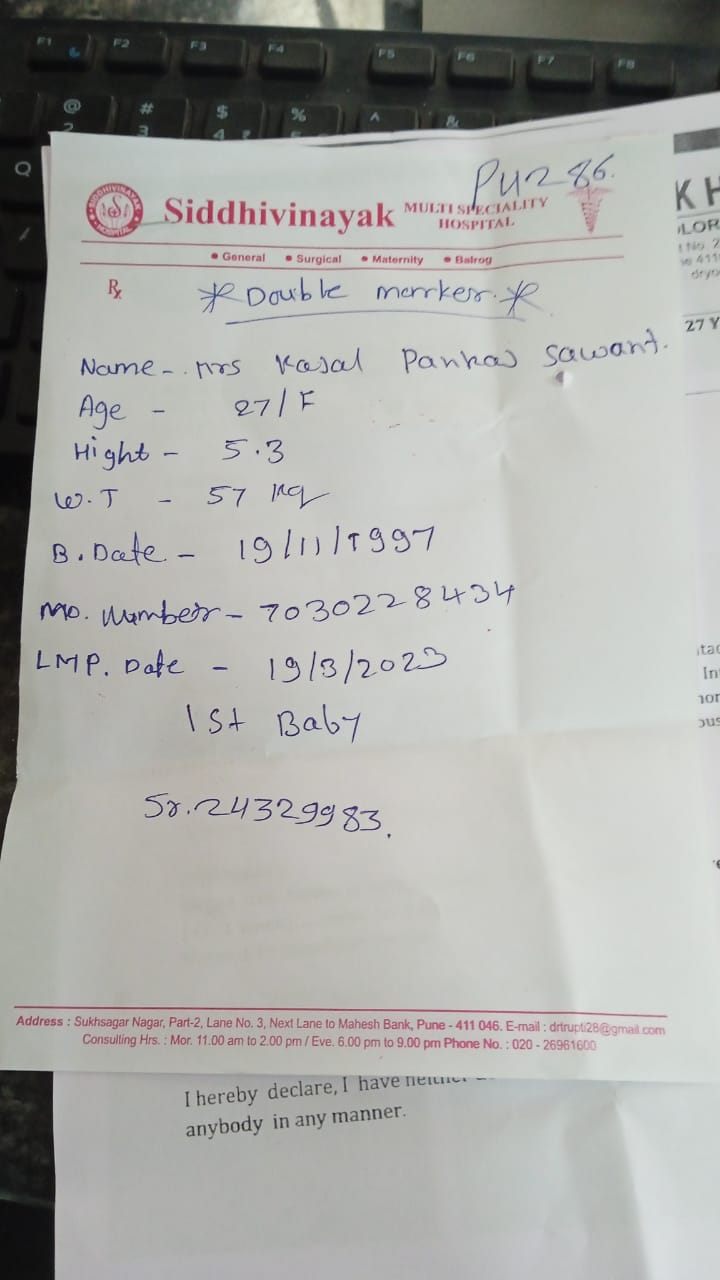 F1 F2 F3 F4 F5 F6 F7 F8
@ # $ % ^ &
2 3 4 ₹
Q
PU286.
SIDDHIVINAYAK HOSPITAL
Siddhivinayak MULTI SPECIALITY
HOSPITAL
• General • Surgical • Maternity • Balrog
Rx
* Double marker. *
Name - . Mrs Kajal Pankaj Sawant.
Age - 27/F
Hight - 5.3
W.T - 57 Kg
B. Date. - 19/11/1997
Mo. Number - 7030228434
LMP. Date - 19/3/2023
1st Baby
Sr. 24329983.
Address : Sukhsagar Nagar, Part-2, Lane No. 3, Next Lane to Mahesh Bank, Pune - 411 046. E-mail : drtrupti28@gmail.com
Consulting Hrs. : Mor. 11.00 am to 2.00 pm / Eve. 6.00 pm to 9.00 pm Phone No. : 020 - 26961600
I hereby declare, I have
anybody in any manner.
K H
LOR
No. 2
411
27 Y